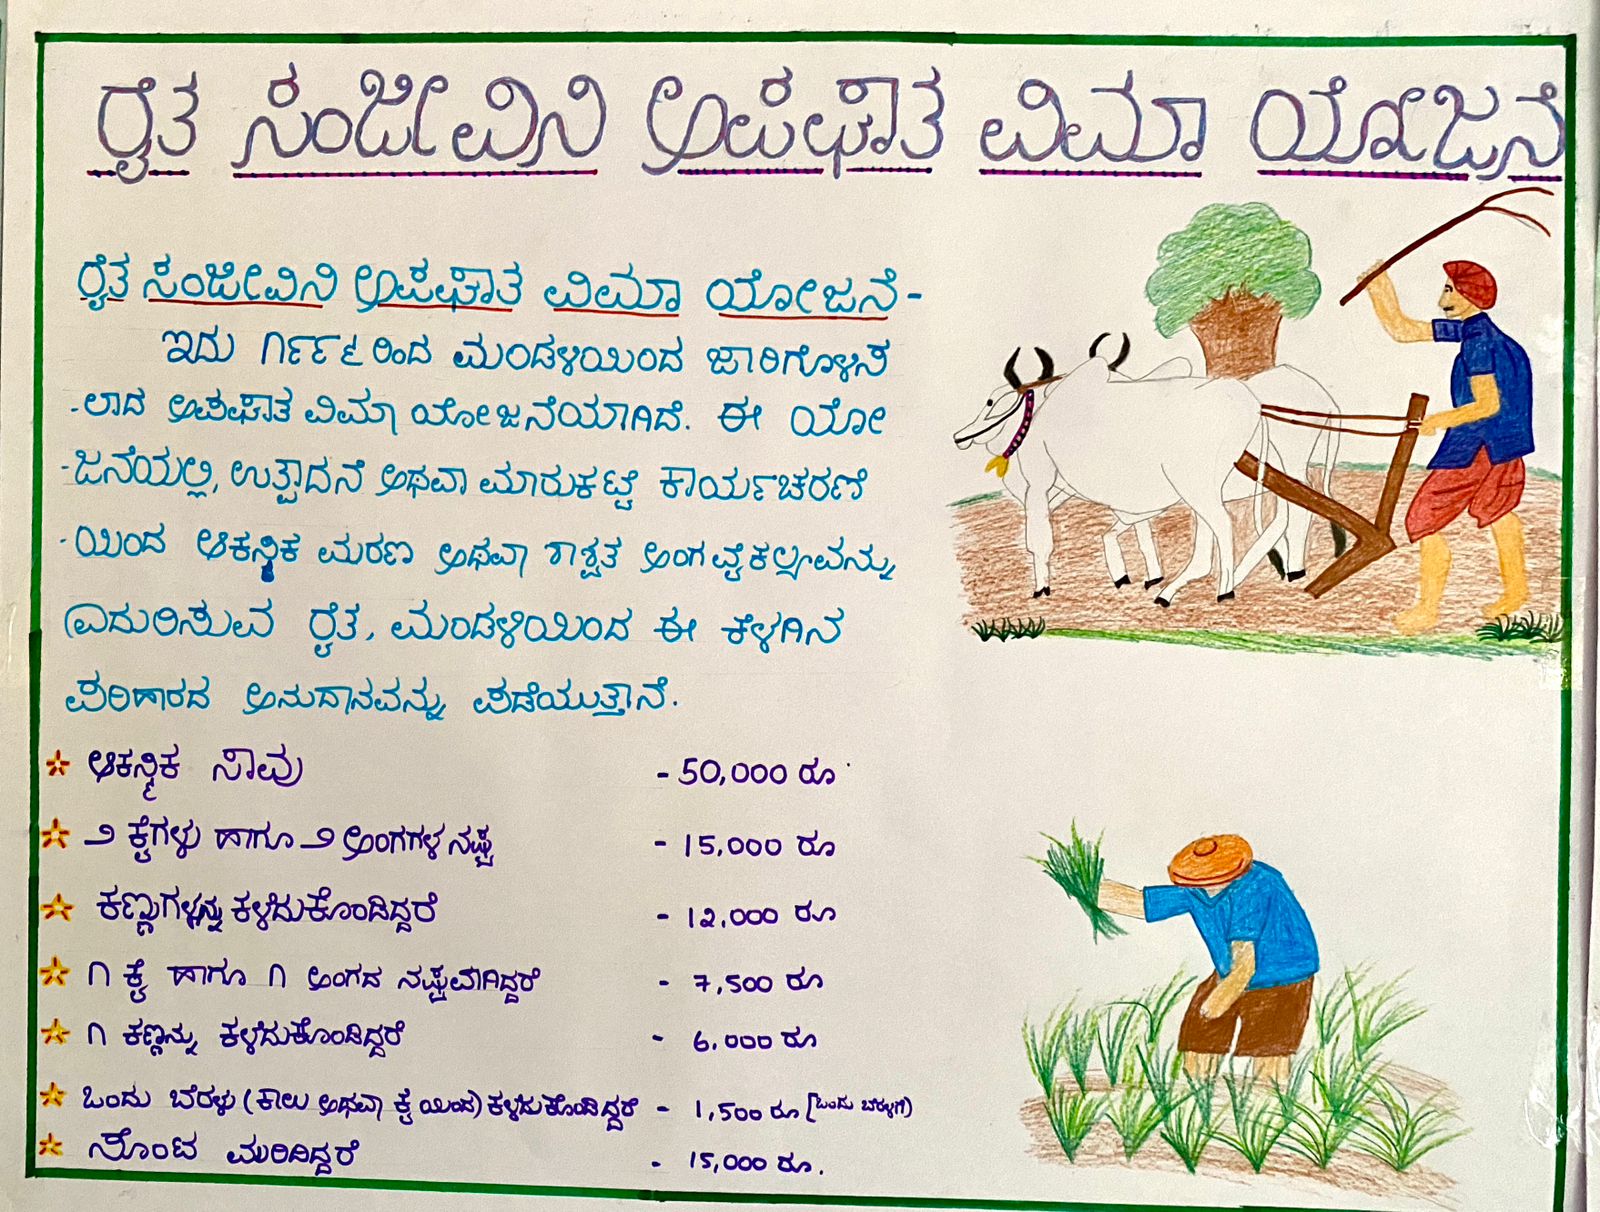 ರೈತ ಸಂಜೀವಿನಿ ಅಪಘಾತ ವಿಮಾ ಯೋಜನೆ
ರೈತ ಸಂಜೀವಿನಿ ಅಪಘಾತ ವಿಮಾ ಯೋಜನೆ -
ಇದು ೧೯೯೬ ರಿಂದ ಮಂಡಳಿಯಿಂದ ಜಾರಿಗೊಳಿಸ
-ಲಾದ ಅಪಘಾತ ವಿಮಾ ಯೋಜನೆಯಾಗಿದೆ. ಈ ಯೋ
-ಜನೆಯಲ್ಲಿ, ಉತ್ಪಾದನೆ ಅಥವಾ ಮಾರುಕಟ್ಟೆ ಕಾರ್ಯಚರಣೆ
-ಯಿಂದ ಆಕಸ್ಮಿಕ ಮರಣ ಅಥವಾ ಶಾಶ್ವತ ಅಂಗವೈಕಲ್ಯವನ್ನು
ಎದುರಿಸುವ ರೈತ, ಮಂಡಳಿಯಿಂದ ಈ ಕೆಳಗಿನ
ಪರಿಹಾರದ ಅನುದಾನವನ್ನು ಪಡೆಯುತ್ತಾನೆ.
ಆಕಸ್ಮಿಕ ಸಾವು - 50,000 ರೂ
೨ ಕೈಗಳು ಹಾಗೂ ೨ ಅಂಗಗಳ ನಷ್ಟ - 15,000 ರೂ
ಕಣ್ಣುಗಳನ್ನು ಕಳೆದುಕೊಂಡಿದ್ದರೆ - 12,000 ರೂ
೧ ಕೈ ಹಾಗೂ ೧ ಅಂಗದ ನಷ್ಟವಾಗಿದ್ದರೆ - 7,500 ರೂ
೧ ಕಣ್ಣನ್ನು ಕಳೆದುಕೊಂಡಿದ್ದರೆ - 6,000 ರೂ
ಒಂದು ಬೆರಳು (ಕಾಲು ಅಥವಾ ಕೈ ಯಿಂದ) ಕಳೆದುಕೊಂಡಿದ್ದರೆ - 1,500 ರೂ [ಒಂದು ಬೆರಳಿಗೆ)
ಸೊಂಟ ಮುರಿದಿದ್ದರೆ - 15,000 ರೂ.